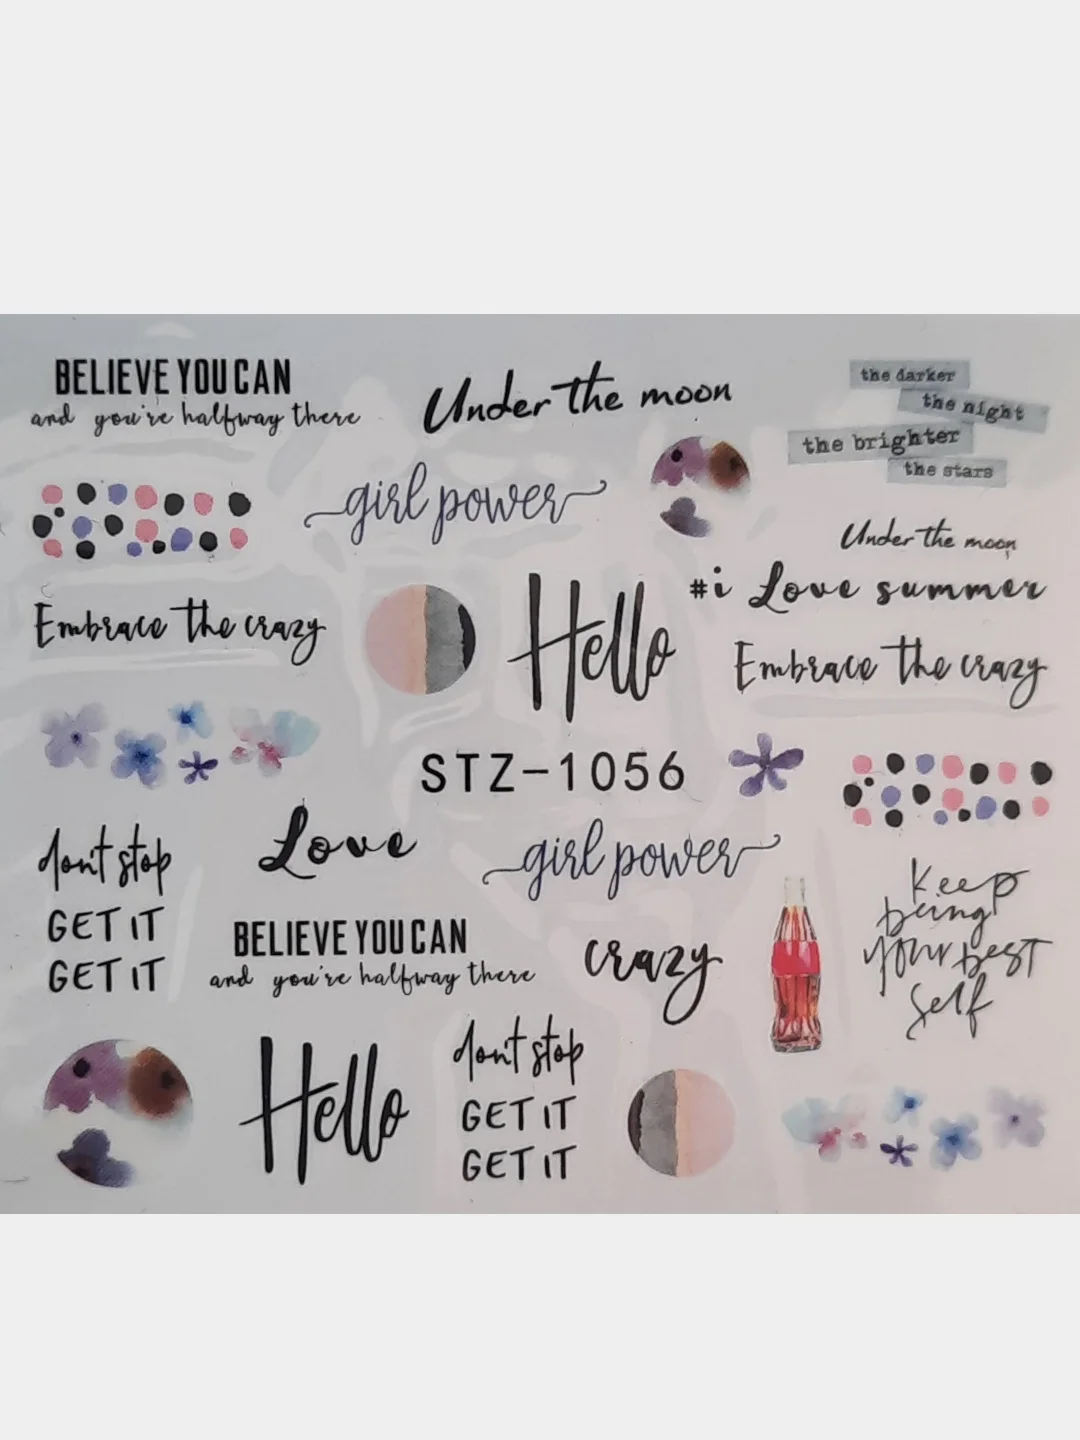 BELIEVE YOU CAN
and you're halfway there
Under the moon
the darker
the night
the brighter
the stars
girl power
Under the moon
#i Love summer
Embrace the crazy
Hello
Embrace the crazy
STZ-1056
don't stop
GET IT
GET IT
Love
girl power
BELIEVE YOU CAN
and you're halfway there
crazy
Keep
being
your best
self
Hello
don't stop
GET IT
GET IT